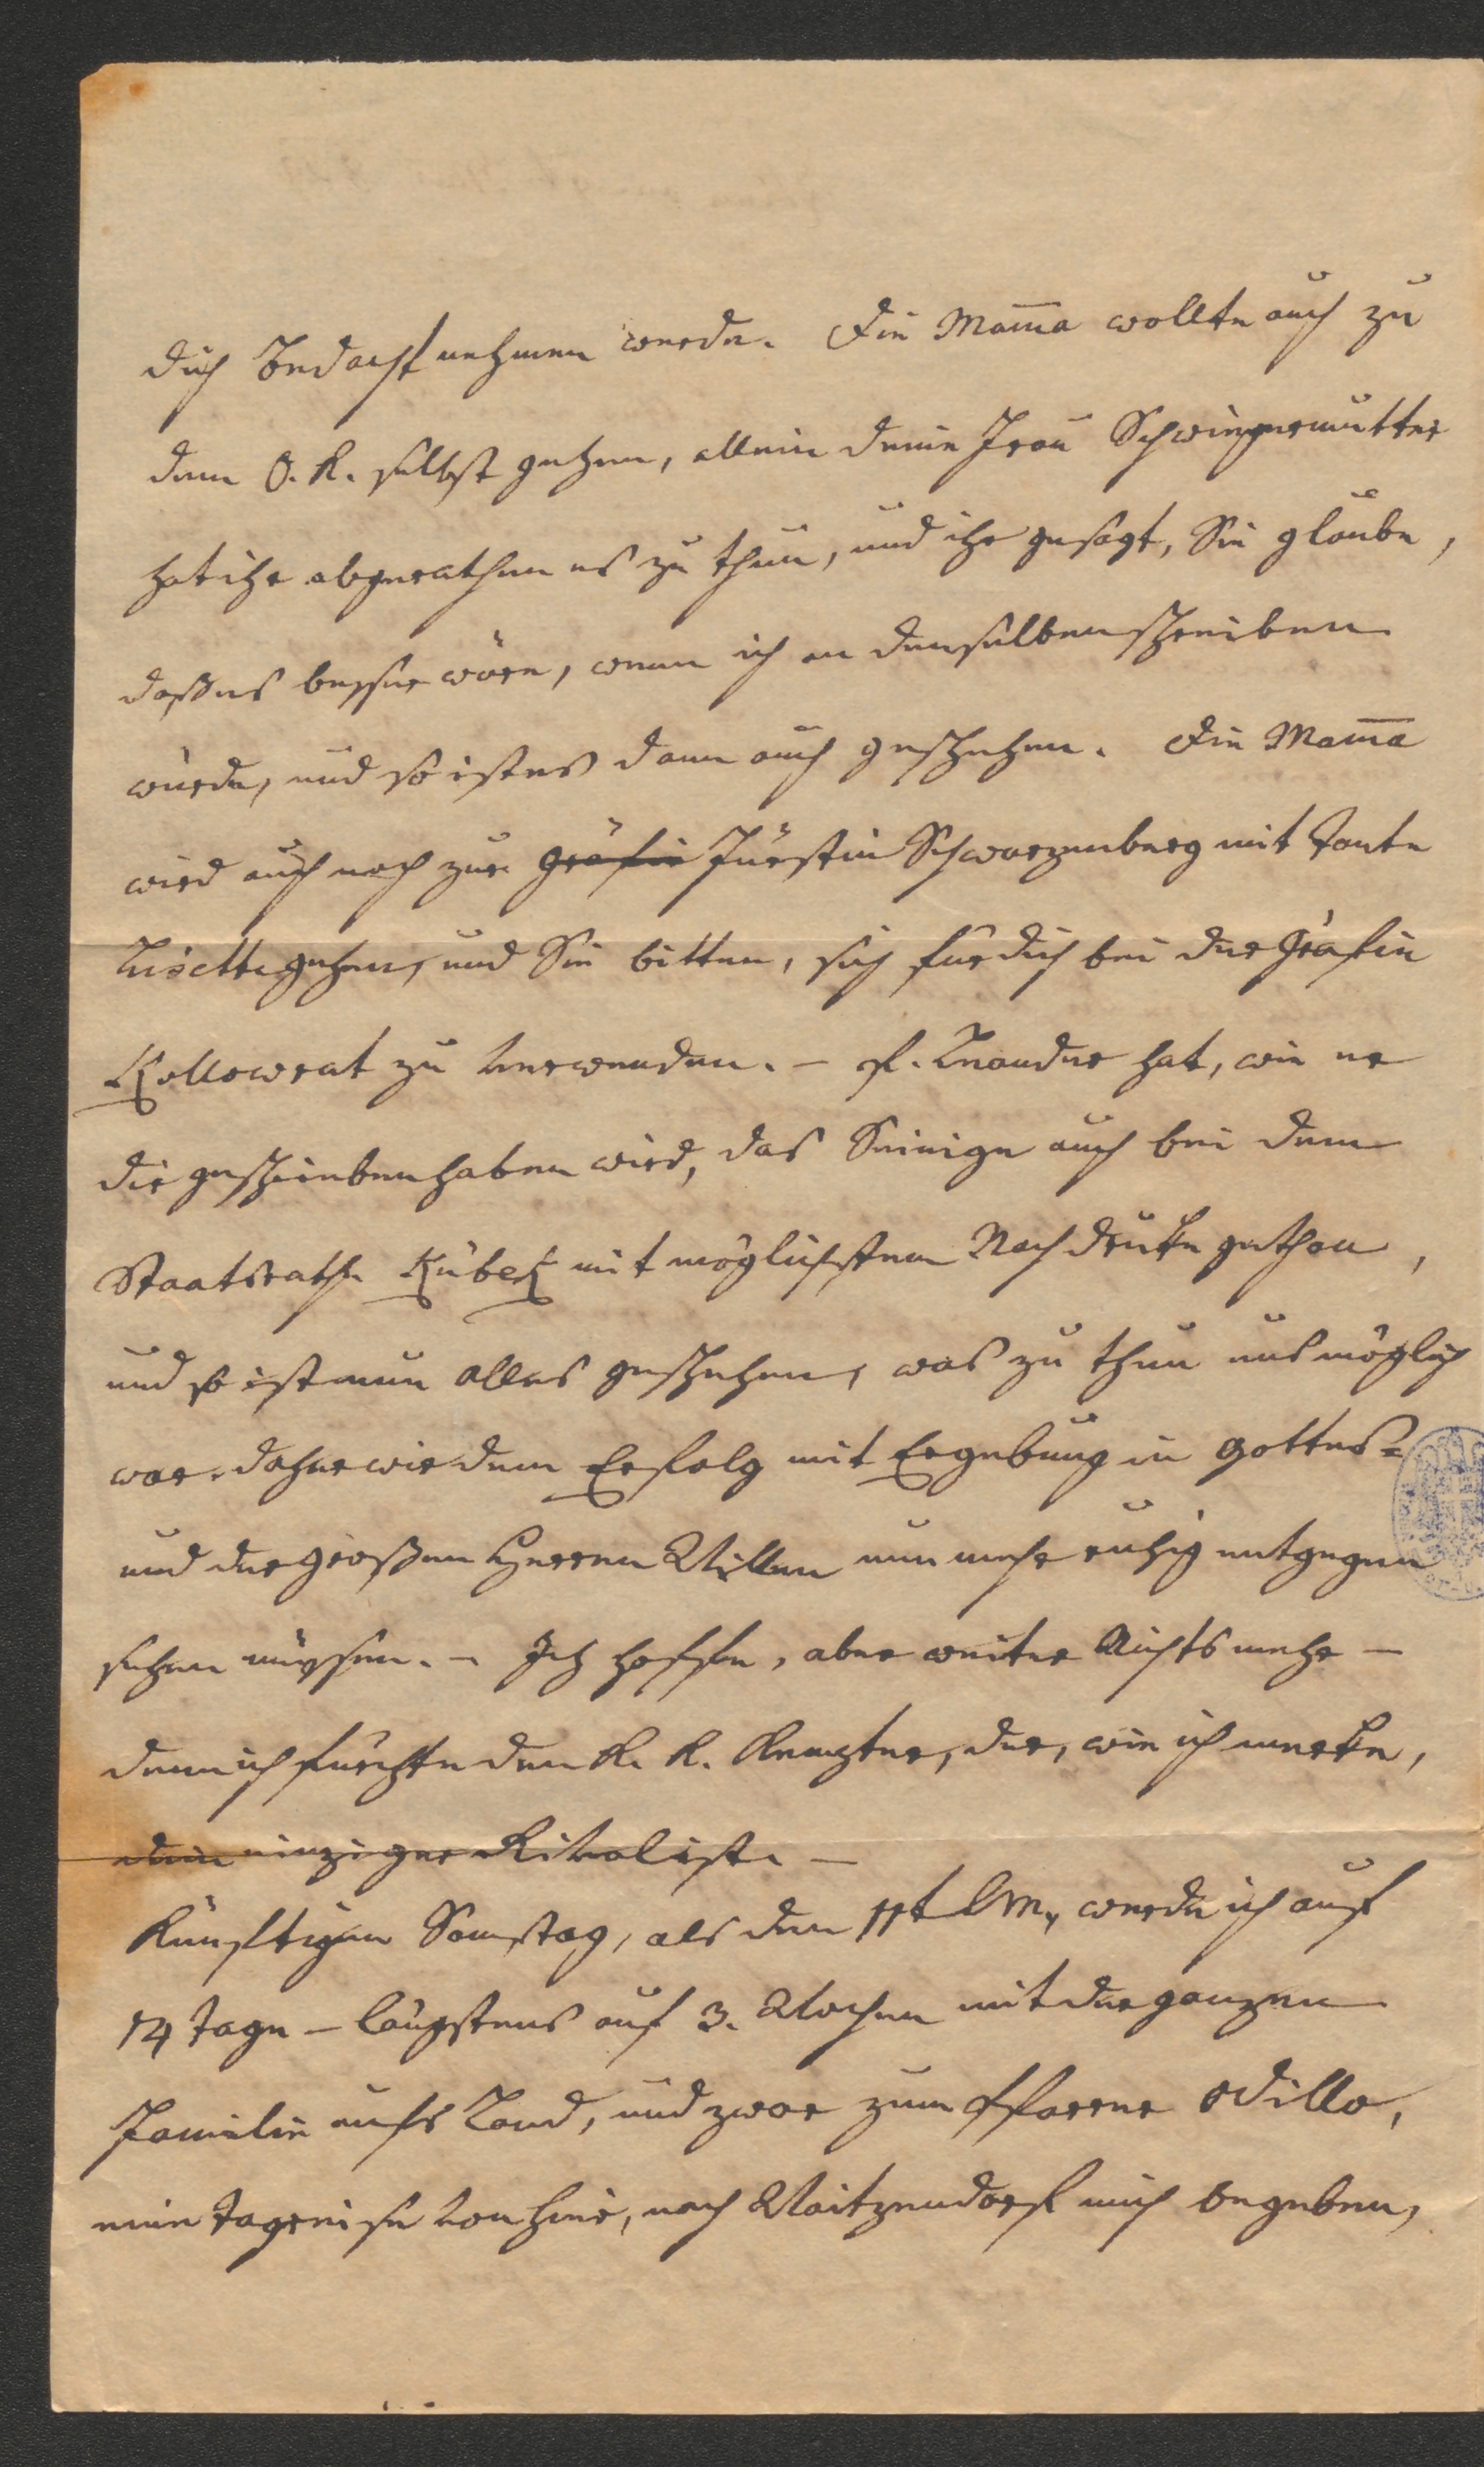 dich Bedacht nehmen werde. Die Mama wollte auch zu
dem O. K. selbst gehen, allein deine Frau Schwiegermutter
hat ihr abgerathen es zu thun, und ihr gesagt, Sie glaube,
daß es besser wäre, wenn ich an denselben schreiben
würde, und so ist es dann auch geschehen. Die Mama
wird auch noch zur Gräfin Fürstin Schwarzenberg mit Tante
Lisette gehen, und Sie bitten, sich für dich bei der Gräfin
Kollowrat zu verwenden. – H. Knauder hat, wie er
dir geschrieben haben wird, das Seinige auch bei dem
Staatsrathe Kübek mit möglichstem Nachdrucke gethan,
und so ist nun alles geschehen, was zu thun uns möglich
war, daher wir dem Erfolg mit Ergebung in Gottes-
und der großen Herren Willen nunmehr ruhig entgegen
sehen müssen. – Ich hoffe, aber weiter Nichts mehr –
denn ich fürchte den K. K. Kreuzter, der, wie ich merke,
dein einziger Rival ist. –
Künftigen Samstag, als den 11t d M, werde ich auf
14 Tage – längstens auf 3. Wochen mit der ganzen
Familie aufs Land, und zwar zum Pfarrer Odillo,
eine Tagreise von hier, nach Waitzendorf mich begeben,